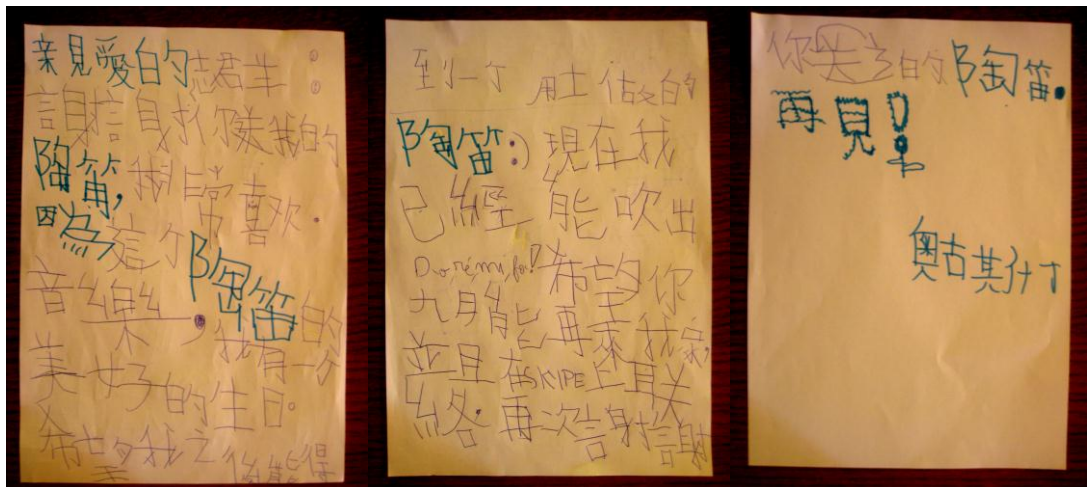 親愛的志君生:
謝謝你送我的
陶笛,我非常喜歡.
因為這个陶笛的
音樂,我有一个
美好的生日。
希望我之後能得
到一个用土做的
陶笛:)現在我
已經能吹出
Do ré mi fa! 希望你
九月能再來我家,
並且在SKIPE上联
絡。再次謝謝
你 的陶笛.
再見!
奧古斯丁